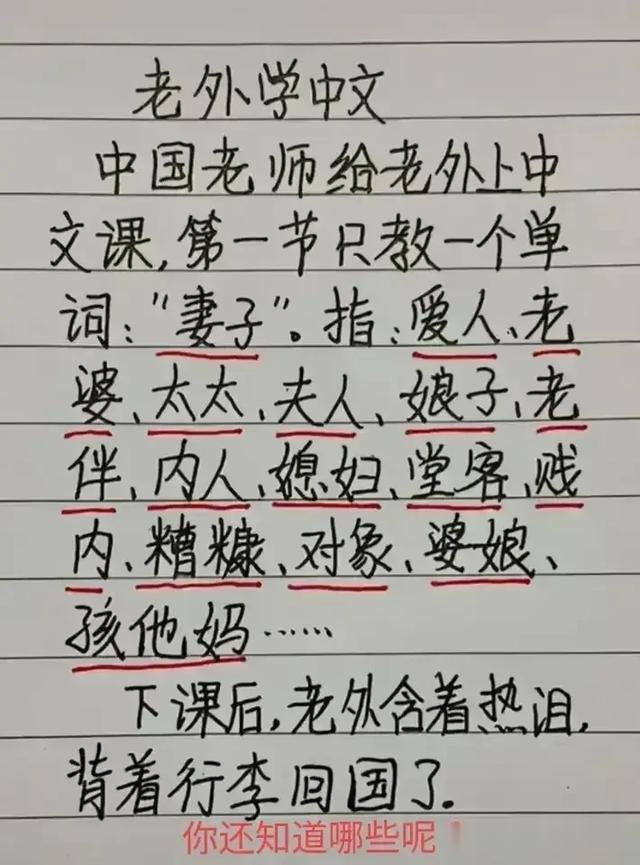 老外学中文
中国老师给老外上中
文课,第一节只教一个单
词:"妻子"。指:爱人、老
婆、太太、夫人、娘子、老
伴、内人、媳妇、堂客、贱
内、糟糠、对象、婆娘、
孩他妈……
下课后,老外含着热泪,
背着行李回国了.
你还知道哪些呢！